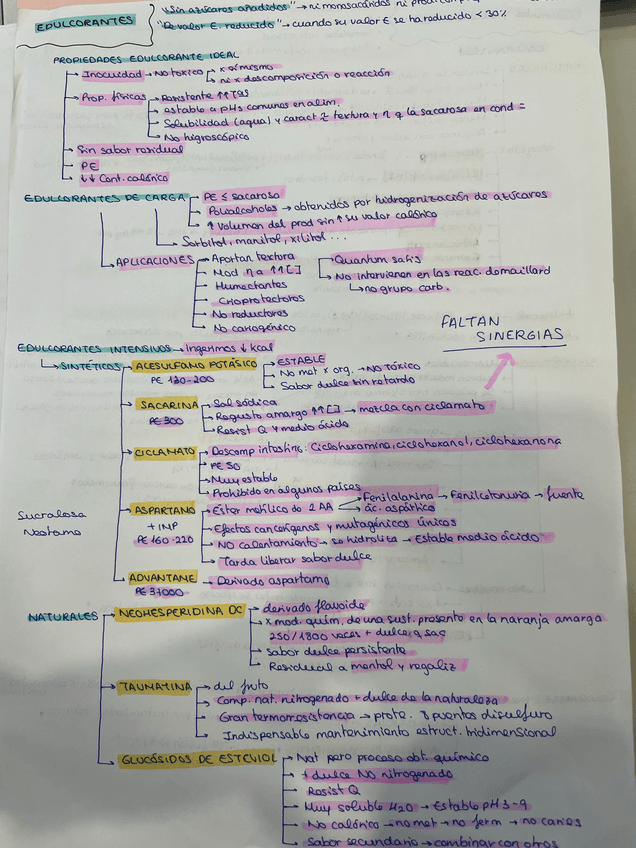 "Sin azúcares añadidos" → ni monosacáridos ni
EDULCORANTES
"De valor E. reducido" → cuando su valor E se ha reducido < 30%
PROPIEDADES EDULCORANTE IDEAL
Inocuidad → No tóxico x sí mismo
ni x descomposición o reacción
Prop. físicas → Resistente ↑↑Tas
estable a pHs comunes en alim.
Solubilidad (aqua) y caract z textura y η q la sacarosa en cond =
No higroscópico
Sin sabor residual
PE
↓↓ Cont. calórico
EDULCORANTES DE CARGA PE ≤ sacarosa
Polialcoholes → obtenidos por hidrogenización de azúcares
↑ Volumen del prod sin ↑ su valor calórico
Sorbitol, manitol, xilitol ...
APLICACIONES Aportan textura
Mod η a ↑↑[]
Humectantes
Crioprotectores
No reductores
No cariogénico
Quantum satis
No intervienen en las reac. de maillard
↳ no grupo carb.
FALTAN
SINERGIAS
EDULCORANTES INTENSIVOS → ingerimos ↓ kcal
SINTÉTICOS
ACESULFAMO POTÁSICO
PE 130-200
ESTABLE
No met x org. → No TÓXICO
Sabor dulce sin retardo
SACARINA
PE 300
Sal sódica
Regusto amargo ↑↑[] → mezcla con ciclamato
Resist Q y medio ácido
CICLAMATO
Descomp intestino: Ciclohexamina, ciclohexanol, ciclohexanona
PE 50
Muy estable
Prohibido en algunos países
Sucralosa
Neotamo
ASPARTAMO
+ IMP
PE 160-220
Éster metílico de 2 AA
Fenilalanina → Fenilcetonuria → fuente
ác. aspártico
Efectos cancerígenos y mutagénicos únicos
NO calentamiento → se hidroliza → Estable medio ácido
Tarda liberar sabor dulce
ADVANTAME
PE 37000
Derivado aspartamo
NATURALES
NEOHESPERIDINA DC
derivado flavoide
x mod. quím. de una sust. presente en la naranja amarga
250/1800 veces + dulce q sac
Sabor dulce persistente
Residual a mentol y regaliz
TAUMATINA
del fruto
Comp. nat. nitrogenado + dulce de la naturaleza
Gran termorresistencia → prote. 8 puentes disulfuro
Indispensable mantenimiento estruct. tridimensional
GLUCÓSIDOS DE ESTEVIOL
Nat pero proceso obt. químico
+ dulce NO nitrogenado
Resist Q
Muy soluble H2O → Estable pH 3-9
No calórico → no met → no ferm → no caries
Sabor secundario → combinar con otros